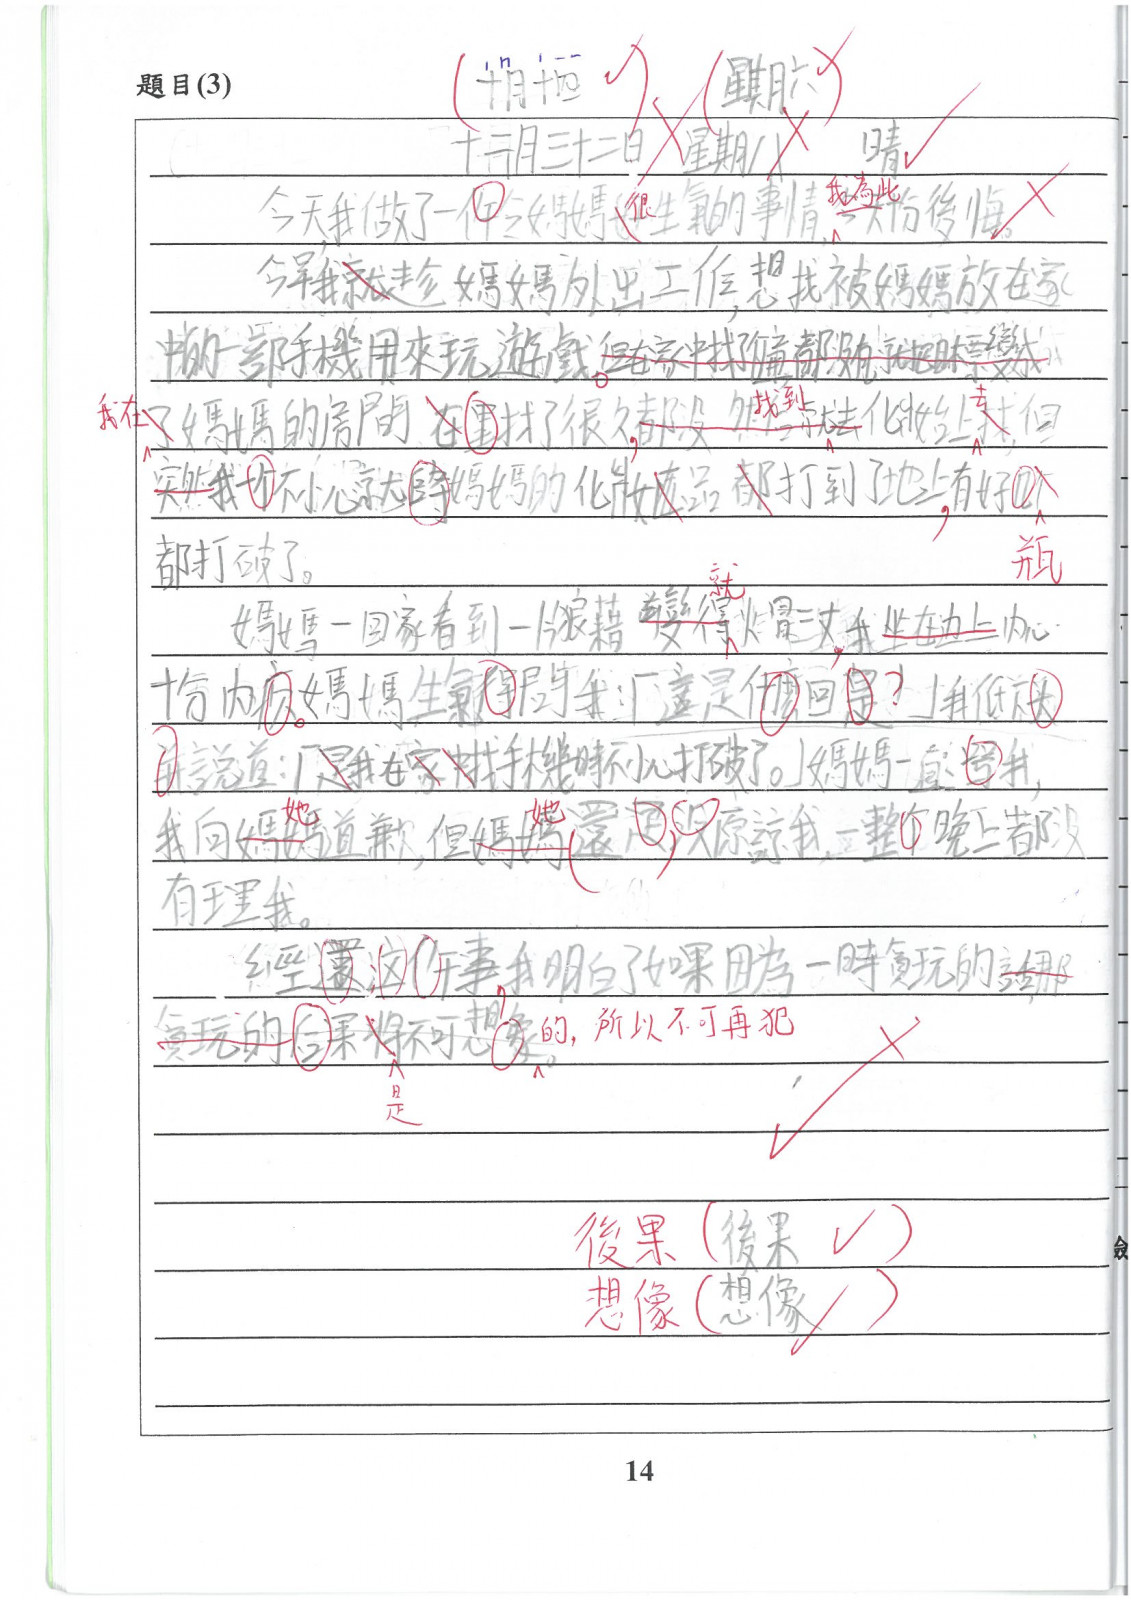 題目(3)
(十月十四) (星期六)
十二月三十二日 星期八 晴
今天我做了一件令媽媽很生氣的事情,我為此十份後悔。
今早我就趁媽媽外出工作,想找被媽媽放在家
中的一部手機用來玩遊戲。但在家中找了 都沒 就把目標變成
我在了媽媽的房間 在 找了很久都沒 找到 就去化妝 去找,但
突然我一個不小心就 媽媽的化妝品都打到了地上,有好 瓶
都打破了。
媽媽一回家看到一片狼藉 變得就火冒三丈,我坐在 上內心
十分內疚。媽媽生氣得 我:「這是什麼回是?」我低 頭
說道:「是我在家中找手機時不小心打破了。」媽媽一直 我,
我向媽媽她道歉,但媽媽她還 ,只原諒我,一整個晚上都沒
有理我。
經 這件事,我明白了如果因為一時貪玩的
貪玩的后果將是不可想象的,所以不可再犯。
後果(後果)
想像(想像)
14